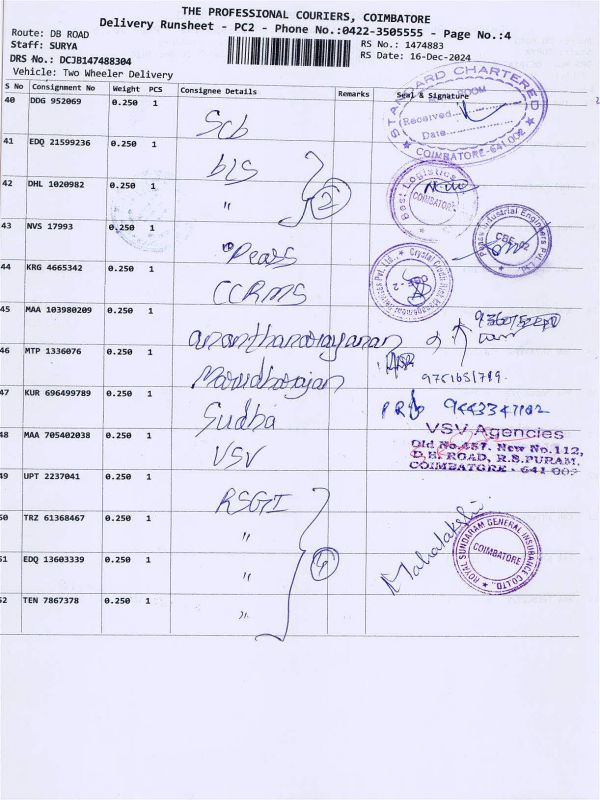 THE PROFESSIONAL COURIERS, COIMBATORE
Delivery Runsheet - PC2 - Phone No.:0422-3505555 - Page No.:4
Route: DB ROAD
Staff: SURYA
RS No.: 1474883
DRS No.: DCJB147488304
RS Date: 16-Dec-2024
Vehicle: Two Wheeler Delivery
S No Consignment No Weight PCS Consignee Details Remarks Seal & Signature
40 DDG 952069 0.250 1 Scb
STANDARD CHARTERED
ROOM
Received
Date
COIMBATORE-641 002
41 EDQ 21599236 0.250 1 bLS
42 DHL 1020982 0.250 1 " 2
Best Logistics
COIMBATORE
43 NVS 17993 0.250 1 Pears
Industrial Engineers Pvt. Ltd.
CBE
44 KRG 4665342 0.250 1 CCRMS
Crystal Pvt. Ltd.
CBE - 2
45 MAA 103980209 0.250 1 ananthanarayanan
46 MTP 1336076 0.250 1 Marudharajan
47 KUR 696499789 0.250 1 Sudha 9443347102
48 MAA 705402038 0.250 1 VSV
VSV Agencies
Old No.457, New No.112,
D.B. ROAD, R.S.PURAM,
COIMBATORE - 641 002
49 UPT 2237041 0.250 1 RSGI
50 TRZ 61368467 0.250 1 "
51 EDQ 13603339 0.250 1 " 4
52 TEN 7867378 0.250 1 "
Mahalakshmi
ROYAL SUNDARAM GENERAL INSURANCE CO LTD.
COIMBATORE